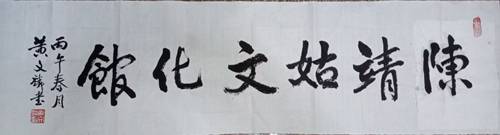 陳靖姑文化館
丙午春月
黃文鏻書